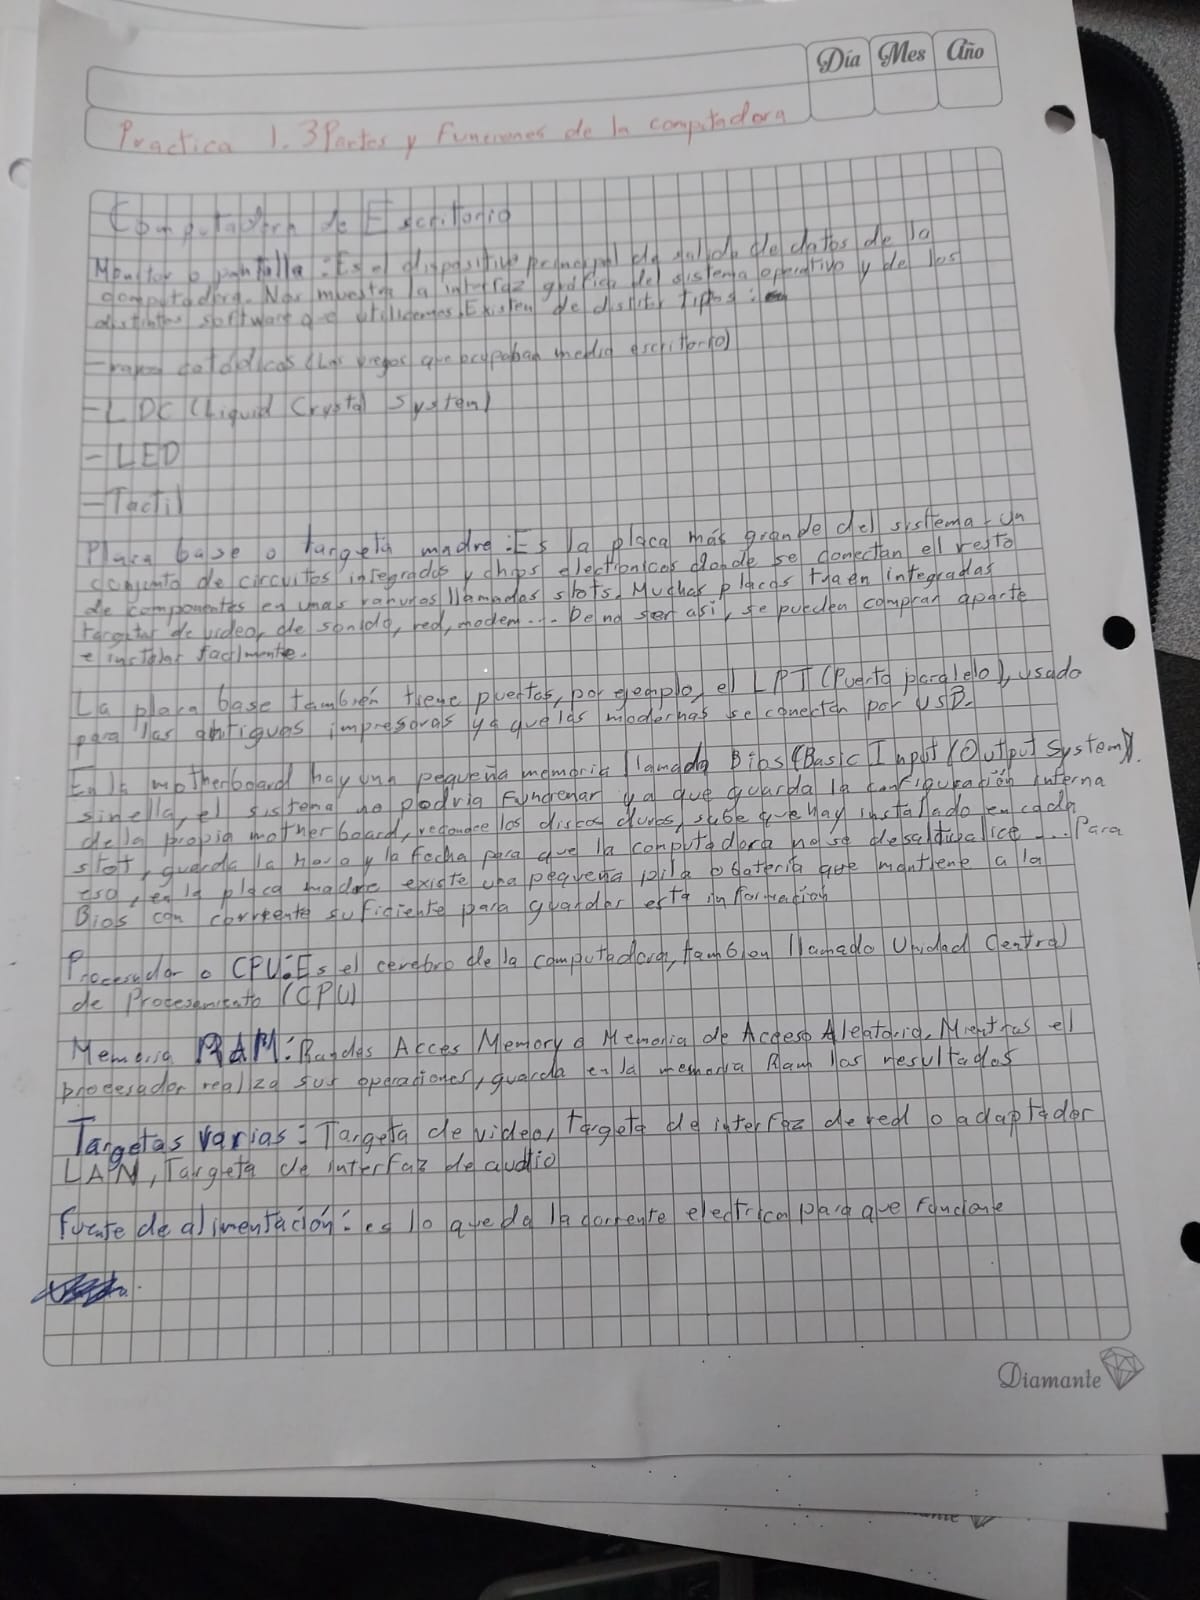 Día Mes Año
Practica 1.3 Partes y Funciones de la computadora
Computadora de Escritorio
Monitor o pantalla: Es el dispositivo principal de salida de datos de la
computadora. Nos muestra la interfaz gráfica del sistema operativo y de los
distintos software que utilicemos. Existen de distitos tipos:
-rayos catódicos (Los viejos que ocupaban medio escritorio)
-LDC (Liquid Crystal System)
-LED
-Tactil
Placa base o targeta madre: Es la placa más grande del sistema - Un
conjunto de circuitos integrados y chips electronicos donde se conectan el resto
de componentes en unas ranuras llamadas slots. Muchas placas traen integradas
targetas de video, de sonido, red, modem... De no ser así, se pueden compran aparte
e instalar facilmente.
La placa base también tiene puertos, por ejemplo, el LPT (Puerto paralelo), usado
para las antiguas impresoras ya que las modernas se conectan por USB.
En la motherboard hay una pequeña memoria llamada Bios (Basic Input (Output System)).
sin ella, el sistema no podria funcionar ya que guarda la configuración interna
de la propia motherboard, reconoce los discos duros, sabe que hay instalado en cada
slot, guarda la hora y la fecha para que la computadora no se desactualice .... Para
eso, en la placa madre existe una pequeña pila o batería que mantiene a la
Bios con corriente suficiente para guardar esta información
Procesador o CPU: Es el cerebro de la computadora, tambien llamado Unidad Central
de Procesamiento (CPU)
Memoria RAM: Acces Memory o Memoria de Acceso Aleatorio. Mientras el
procesador realiza sus operaciones, guarda en la memoria Ram los resultados
Targetas varias: Targeta de video, Targeta de interfaz de red o adaptador
LAN, Targeta de interfaz de audio
fuente de alimentación: es lo que da la corriente electrica para que funcione
Diamante